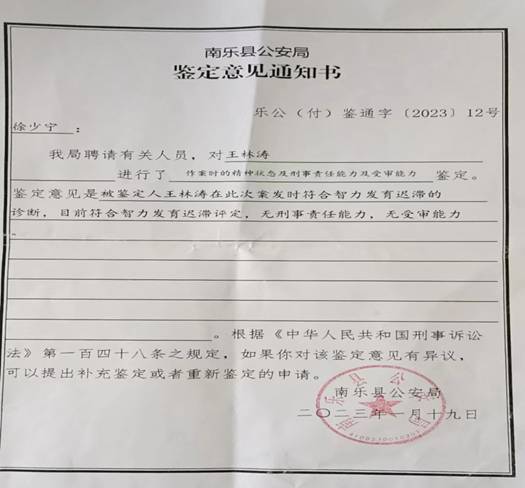 南乐县公安局
鉴定意见通知书
乐公（付）鉴通字〔2023〕12号
徐少宁：
我局聘请有关人员，对王林涛
进行了 作案时的精神状态及刑事责任能力及受审能力 鉴定。
鉴定意见是被鉴定人王林涛在此次案发时符合智力发育迟滞的
诊断，目前符合智力发育迟滞评定，无刑事责任能力，无受审能力
。
。根据《中华人民共和国刑事诉讼
法》第一百四十八条之规定，如果你对该鉴定意见有异议，
可以提出补充鉴定或者重新鉴定的申请。
南乐县公安局
二〇二三年一月十九日